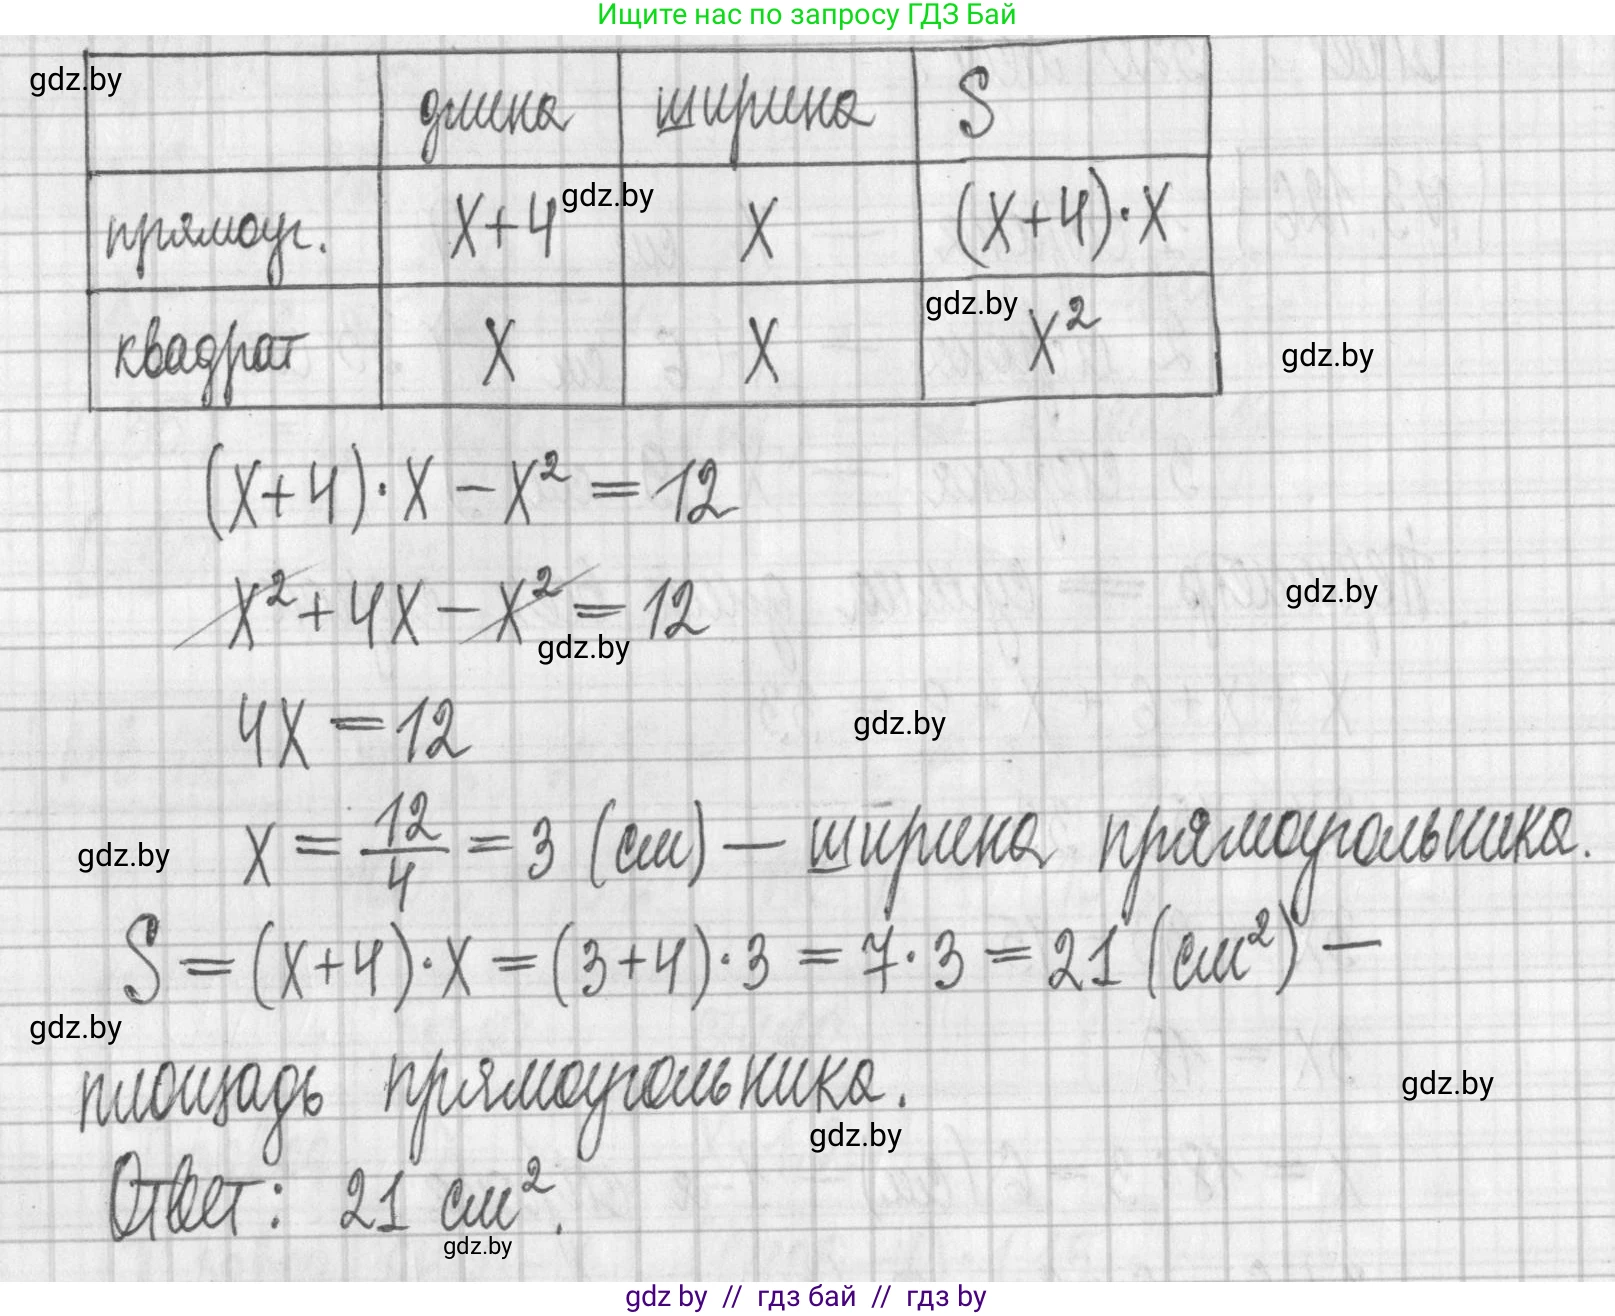 Ищите нас по запросу ГДЗ Бай
gdz.by
длина ширина S
gdz.by
прямоуг. x+4 x (x+4)·x
gdz.by
квадрат x x x²
gdz.by
(x+4)·x − x² = 12
x² + 4x − x² = 12
gdz.by
gdz.by
4x = 12
gdz.by
x = 12/4 = 3 (см) — ширина прямоугольника.
gdz.by
S = (x+4)·x = (3+4)·3 = 7·3 = 21 (см²) —
gdz.by
площадь прямоугольника.
gdz.by
gdz.by
Ответ: 21 см².
gdz.by
gdz by // гдз бай // гдз by